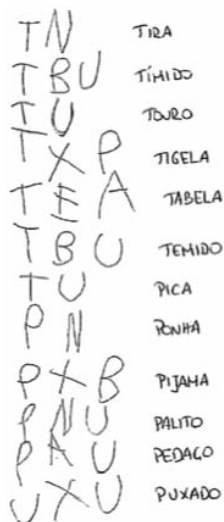 T N TIRA
T B U TÍMIDO
T U TOURO
T X P TIGELA
T E A TABELA
T B U TEMIDO
T U PICA
P N PONHA
P X B PIJAMA
P N U PALITO
P A U PEDAÇO
U X U PUXADO